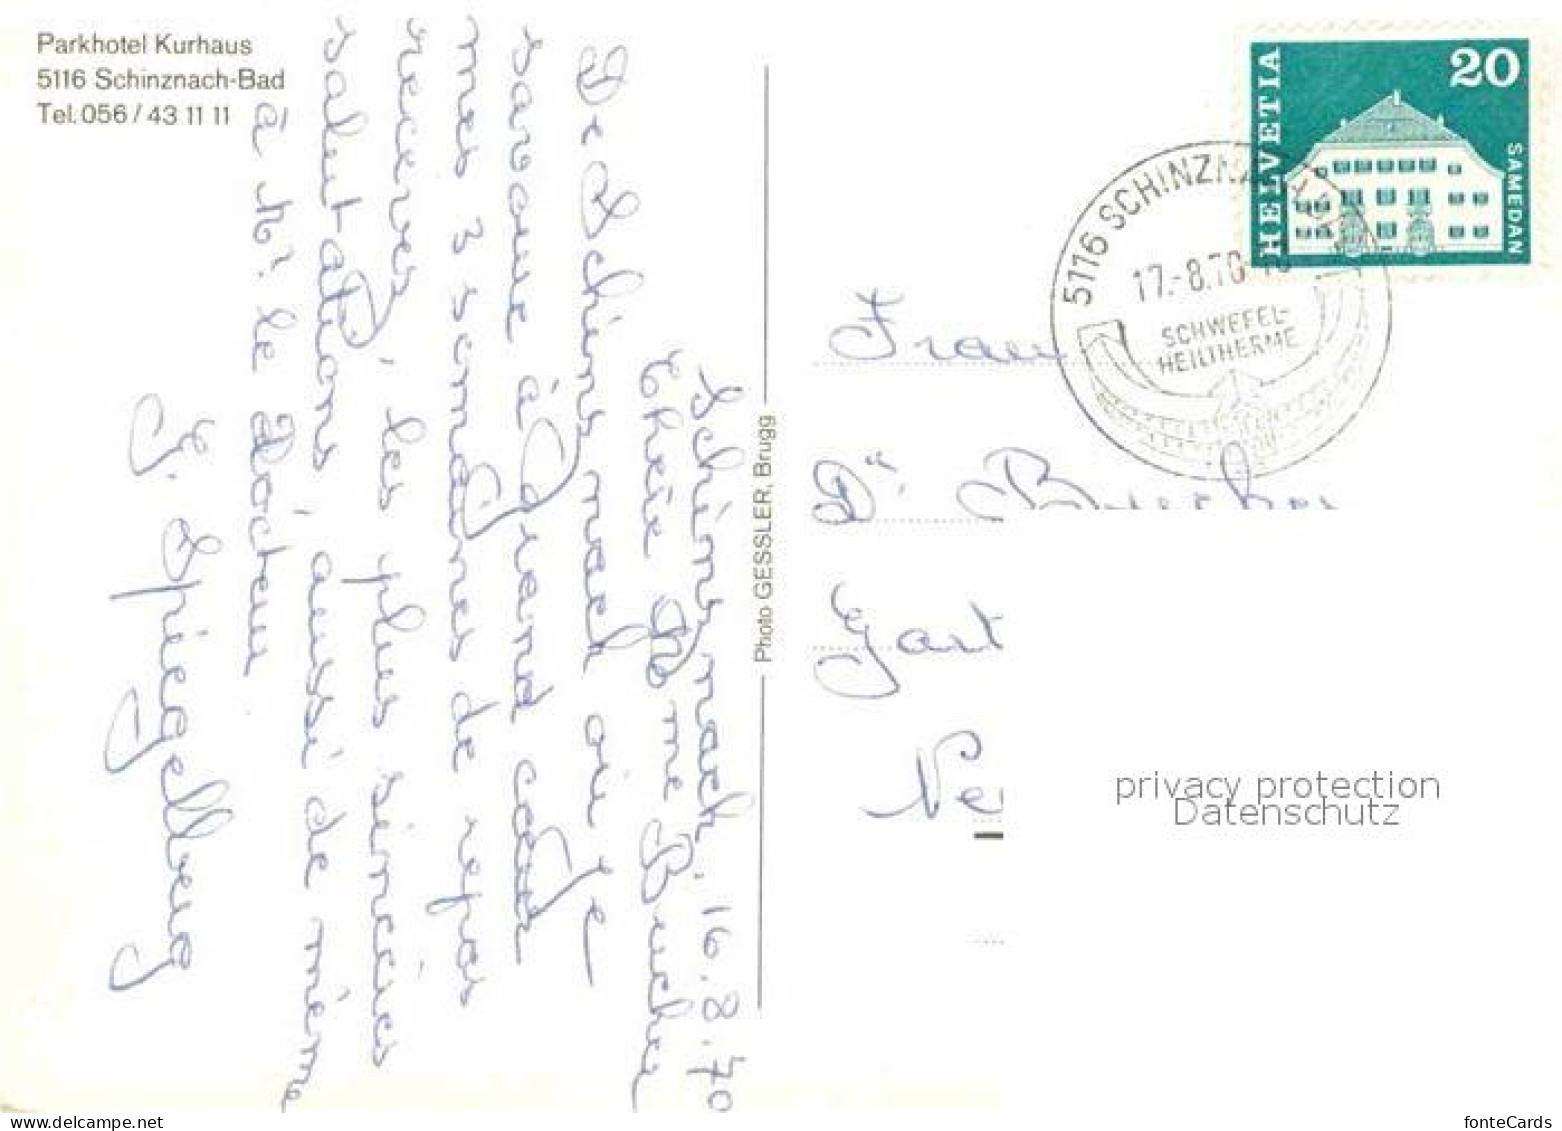 Parkhotel Kurhaus
5116 Schinznach-Bad
Tel. 056 / 43 11 11
Schinznach. 16. 8. 70
Chère Mme Bucher
De Schinznach où je
savoure à Grand coeur
mes 3 semaines de repos
recevez, les plus sincères
salutations, aussi de même
à Mr. le Docteur
J. Spiegelberg
Photo GESSLER, Brugg
HELVETIA
20
SAMEDAN
5116 SCHINZNACH
17.-8.70
SCHWEFEL-
HEILTHERME
Frau
Dr. Bucher
Gart
Ne
privacy protection
Datenschutz
www.delcampe.net
fonteCards